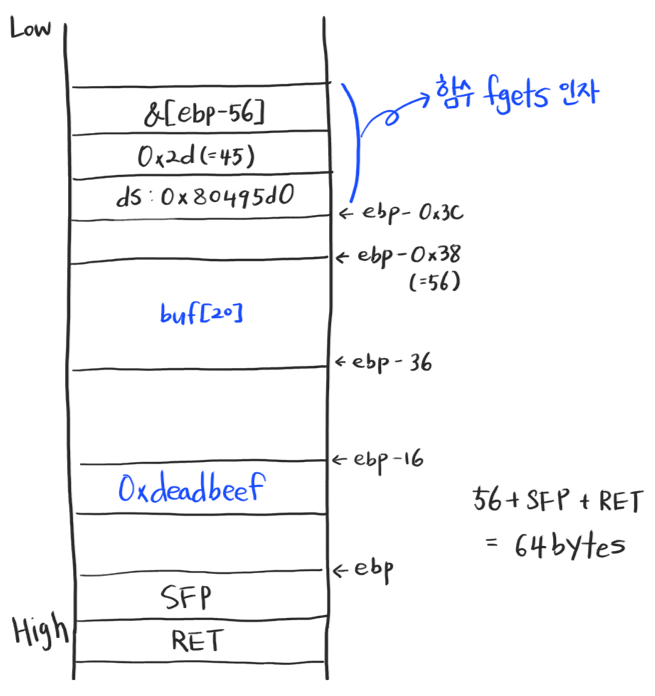 Low
&[ebp-56]
0x2d(=45)
ds:0x80495d0
함수 fgets 인자
← ebp-0x3C
← ebp-0x38
(=56)
buf[20]
← ebp-36
← ebp-16
0xdeadbeef
56+SFP+RET
= 64bytes
← ebp
SFP
High
RET